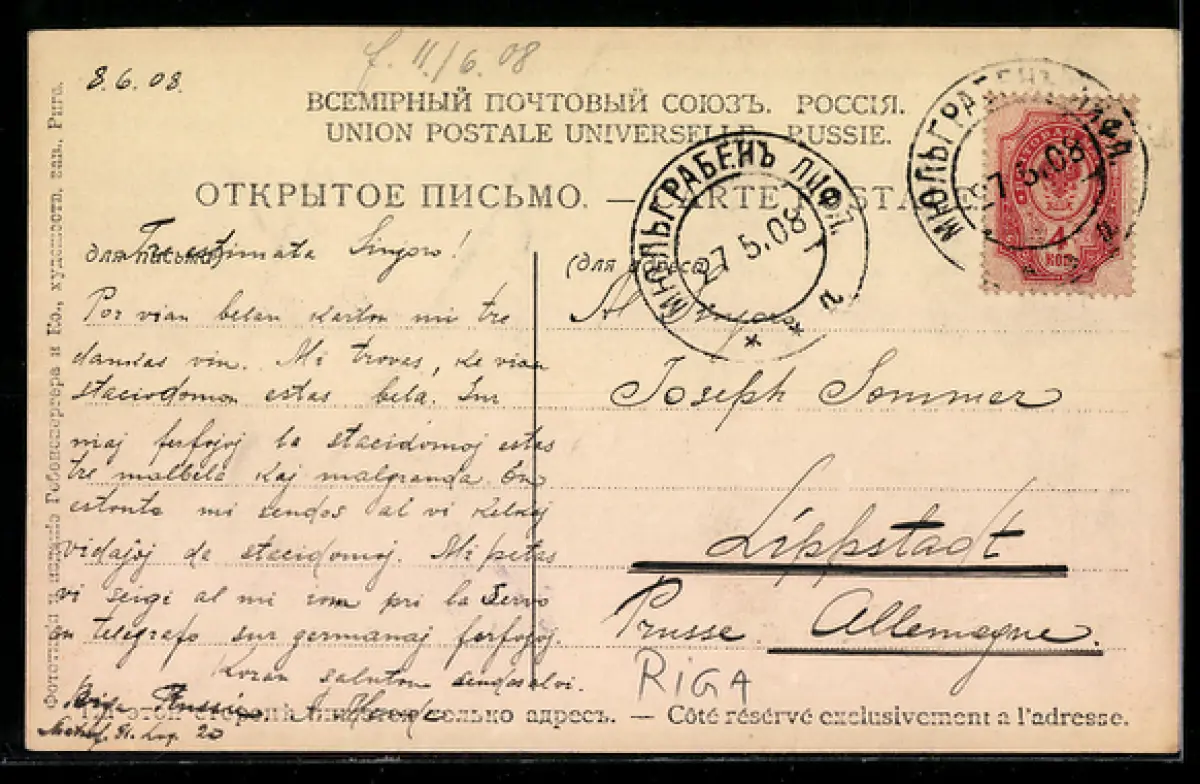 8.6.08.
f. 11/6.08
ВСЕМІРНЫЙ ПОЧТОВЫЙ СОЮЗЪ. РОССІЯ.
UNION POSTALE UNIVERSELLE. RUSSIE.
ОТКРЫТОЕ ПИСЬМО. — CARTE POSTALE
МЮЛЬГРАБЕНЪ ЛИФЛ.
27 5.08
МЮЛЬГРАБЕНЪ ЛИФЛ.
27 5.08
4
КОП
(для письма)
Tre estimata Sinjoro!
Por vian belan karton mi tre
dankas vin. Mi trovas, ke via
staciodomon estas bela. Sur
niaj fervojoj la stacidomoj estas
tre malbela kaj malgranda. En
estonto mi sendos al vi kelkaj
vidajoj da stacidomoj. Mi petas
vi sciigi al mi iom pri la servo
en telegrafo sur germanaj fervojoj.
Koran saluton sendas al vi.
Riga Russie
20
(для адреса)
Al Sinjoro
Joseph Sommer
Lippstadt
Prusse. Allemagne.
RIGA
На этой сторонѣ только адресъ. — Côté réservé exclusivement a l'adresse.
Фототипія и изданіе и Ко., художеств. зав., Рига.